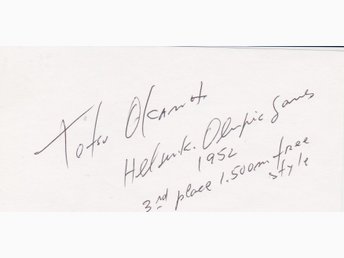 Tetsu Okamoto
Helsinki Olympic Games
1952
3rd place 1.500m free
style